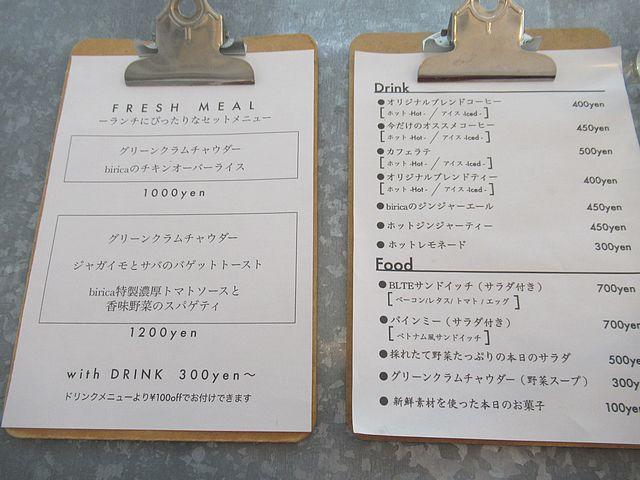 FRESH MEAL
ーランチにぴったりなセットメニュー
グリーンクラムチャウダー
biricaのチキンオーバーライス
1000yen
グリーンクラムチャウダー
ジャガイモとサバのバゲットトースト
birica特製濃厚トマトソースと
香味野菜のスパゲティ
1200yen
with DRINK 300yen〜
ドリンクメニューより¥100offでお付けできます
Drink
●オリジナルブレンドコーヒー 400yen
[ホット -Hot- / アイス -Iced-]
●今だけのオススメコーヒー 450yen
[ホット -Hot- / アイス -Iced-]
●カフェラテ 500yen
[ホット -Hot- / アイス -Iced-]
●オリジナルブレンドティー 400yen
[ホット -Hot- / アイス -Iced-]
●biricaのジンジャーエール 450yen
●ホットジンジャーティー 450yen
●ホットレモネード 300yen
Food
●BLTEサンドイッチ（サラダ付き） 700yen
[ベーコン/レタス/トマト/エッグ]
●バインミー（サラダ付き） 700yen
[ベトナム風サンドイッチ]
●採れたて野菜たっぷりの本日のサラダ 500ye
●グリーンクラムチャウダー（野菜スープ） 300y
●新鮮素材を使った本日のお菓子 100ye